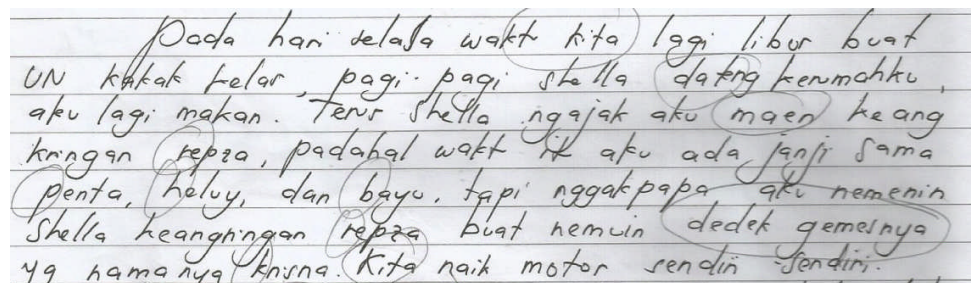 Pada hari selasa wakt kita lagi libur buat
UN kakak kelas, pagi-pagi shella dateng kerumahku,
aku lagi makan. Terus Shella ngajak aku maen keang
kringan repza, padahal wakt it aku ada janji sama
Penta, heluy, dan bayu. tapi nggakpapa aku nemenin
Shella keangringan repza buat nemuin dedek gemesnya
yg namanya krisna. Kita naik motor sendiri-sendiri.